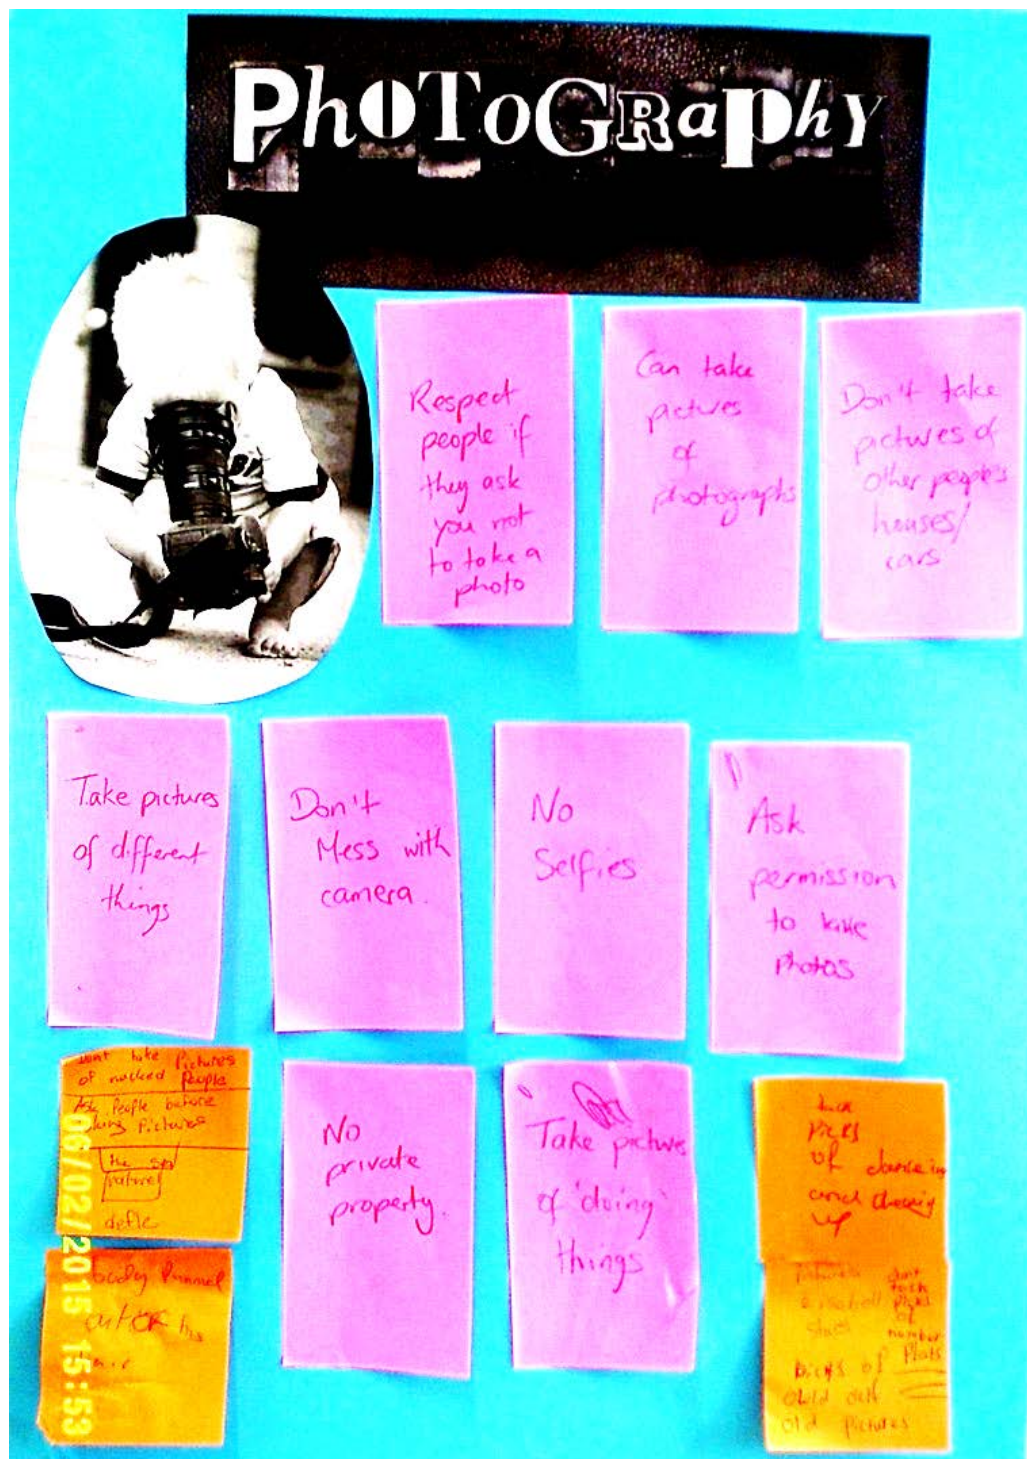 PhOToGRaphY
Respect
people if
they ask
you not
to take a
photo
Can take
pictures
of
photographs
Don't take
pictures of
other people's
houses/
cars
Take pictures
of different
things
Don't
Mess with
camera.
No
Selfies
Ask
permission
to take
Photos
dont take Pictures
of nacked People
Ask People before
Pictures
the
nature
No
private
property.
Take picture
of 'doing'
things
Picks
of danceing
and
up
dont
Picks
of
number
Plats
Picks of
old Pictures
06/02/2015 15:53